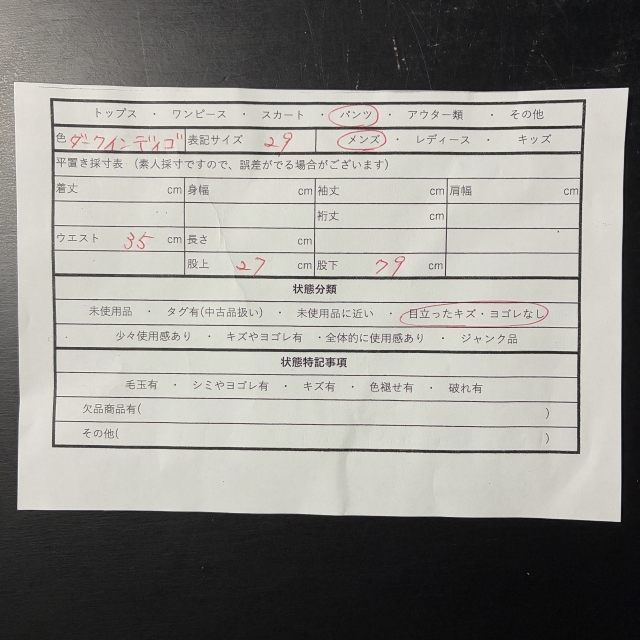 トップス ・ ワンピース ・ スカート ・ パンツ ・ アウター類 ・ その他
色 ダークインディゴ 表記サイズ 29 メンズ ・ レディース ・ キッズ
平置き採寸表 (素人採寸ですので、誤差がでる場合がございます)
着丈 cm 身幅 cm 袖丈 cm 肩幅 cm
裄丈 cm
ウエスト 35 cm 長さ cm
股上 27 cm 股下 79 cm
状態分類
未使用品 ・ タグ有(中古品扱い) ・ 未使用品に近い ・ 目立ったキズ・ヨゴレなし
少々使用感あり ・ キズやヨゴレ有 ・全体的に使用感あり ・ ジャンク品
状態特記事項
毛玉有 ・ シミやヨゴレ有 ・ キズ有 ・ 色褪せ有 ・ 破れ有
欠品商品有( )
その他( )